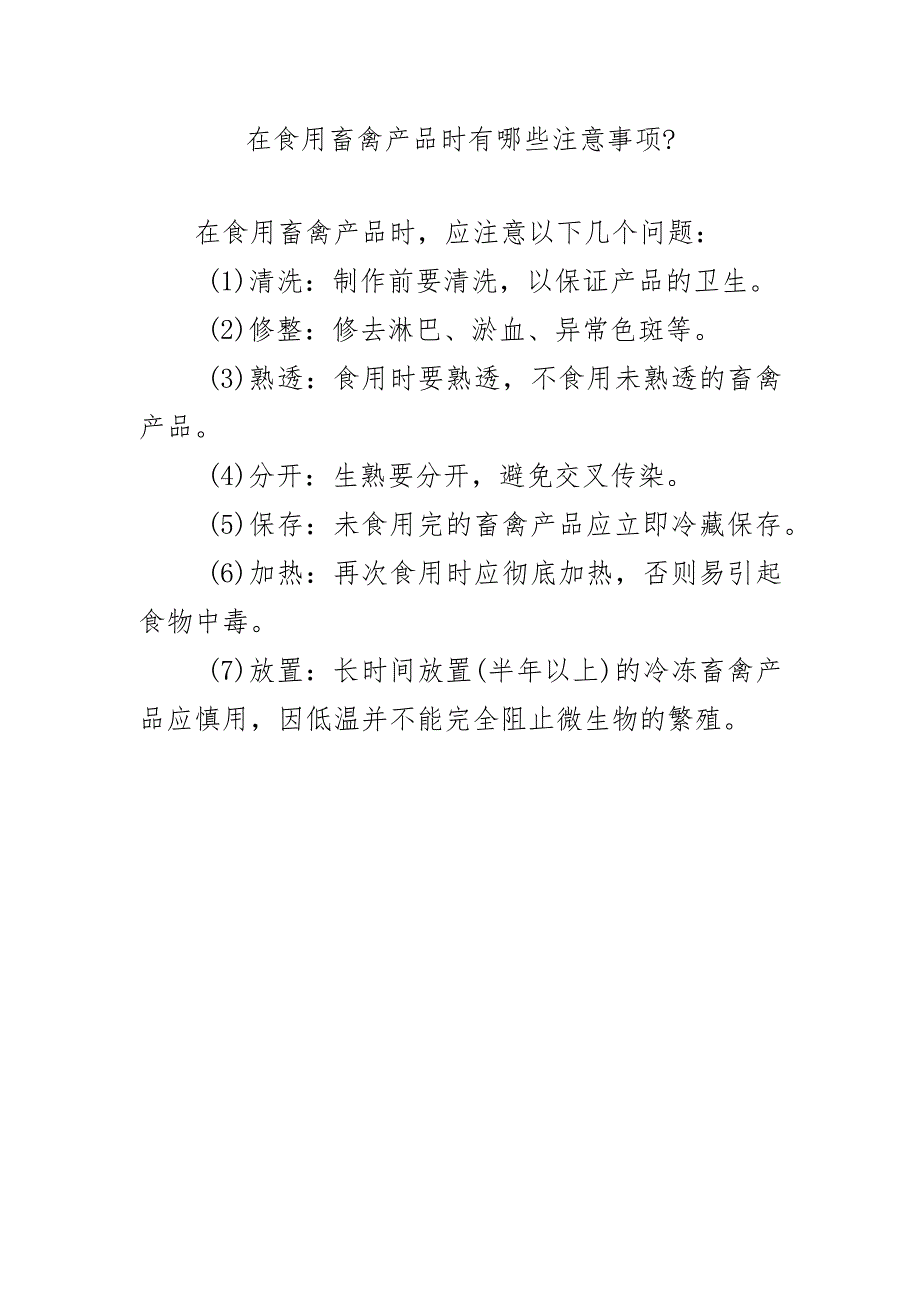 在食用畜禽产品时有哪些注意事项?
在食用畜禽产品时，应注意以下几个问题：
(1)清洗：制作前要清洗，以保证产品的卫生。
(2)修整：修去淋巴、淤血、异常色斑等。
(3)熟透：食用时要熟透，不食用未熟透的畜禽
产品。
(4)分开：生熟要分开，避免交叉传染。
(5)保存：未食用完的畜禽产品应立即冷藏保存。
(6)加热：再次食用时应彻底加热，否则易引起
食物中毒。
(7)放置：长时间放置(半年以上)的冷冻畜禽产
品应慎用，因低温并不能完全阻止微生物的繁殖。